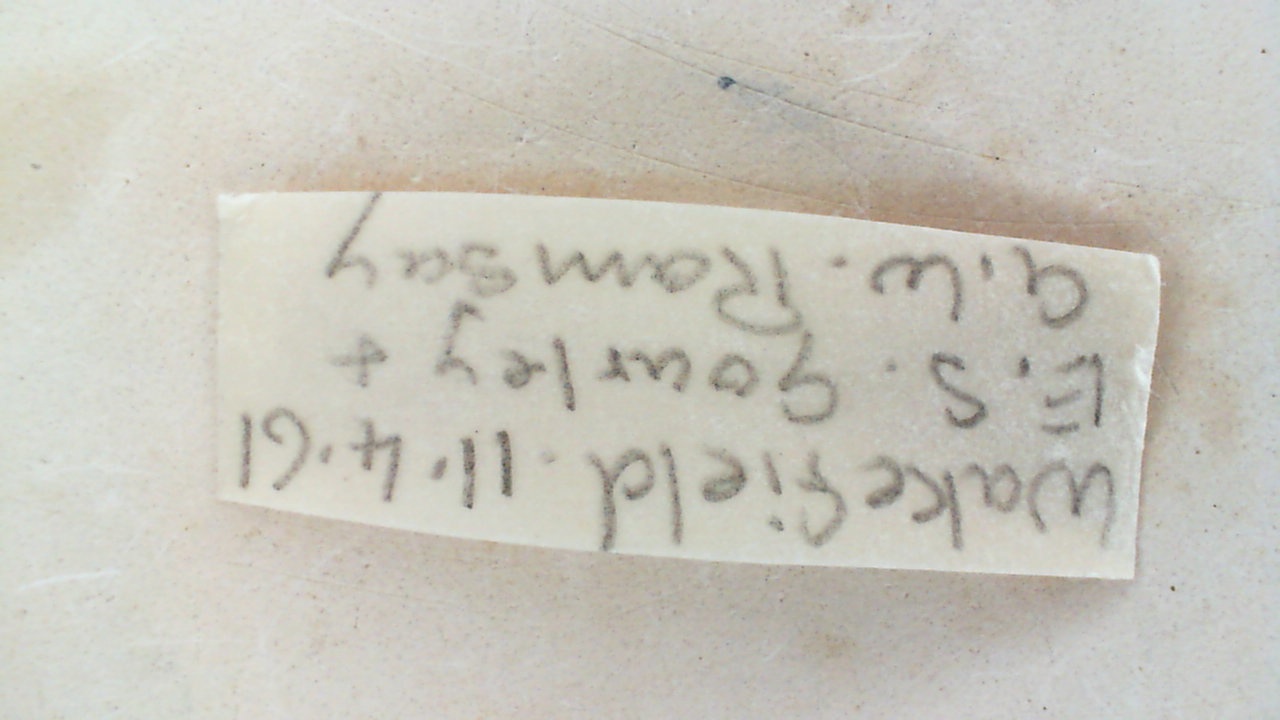 Wakefield. 11.4.61
E.S. Gourley +
G.W. Ramsay